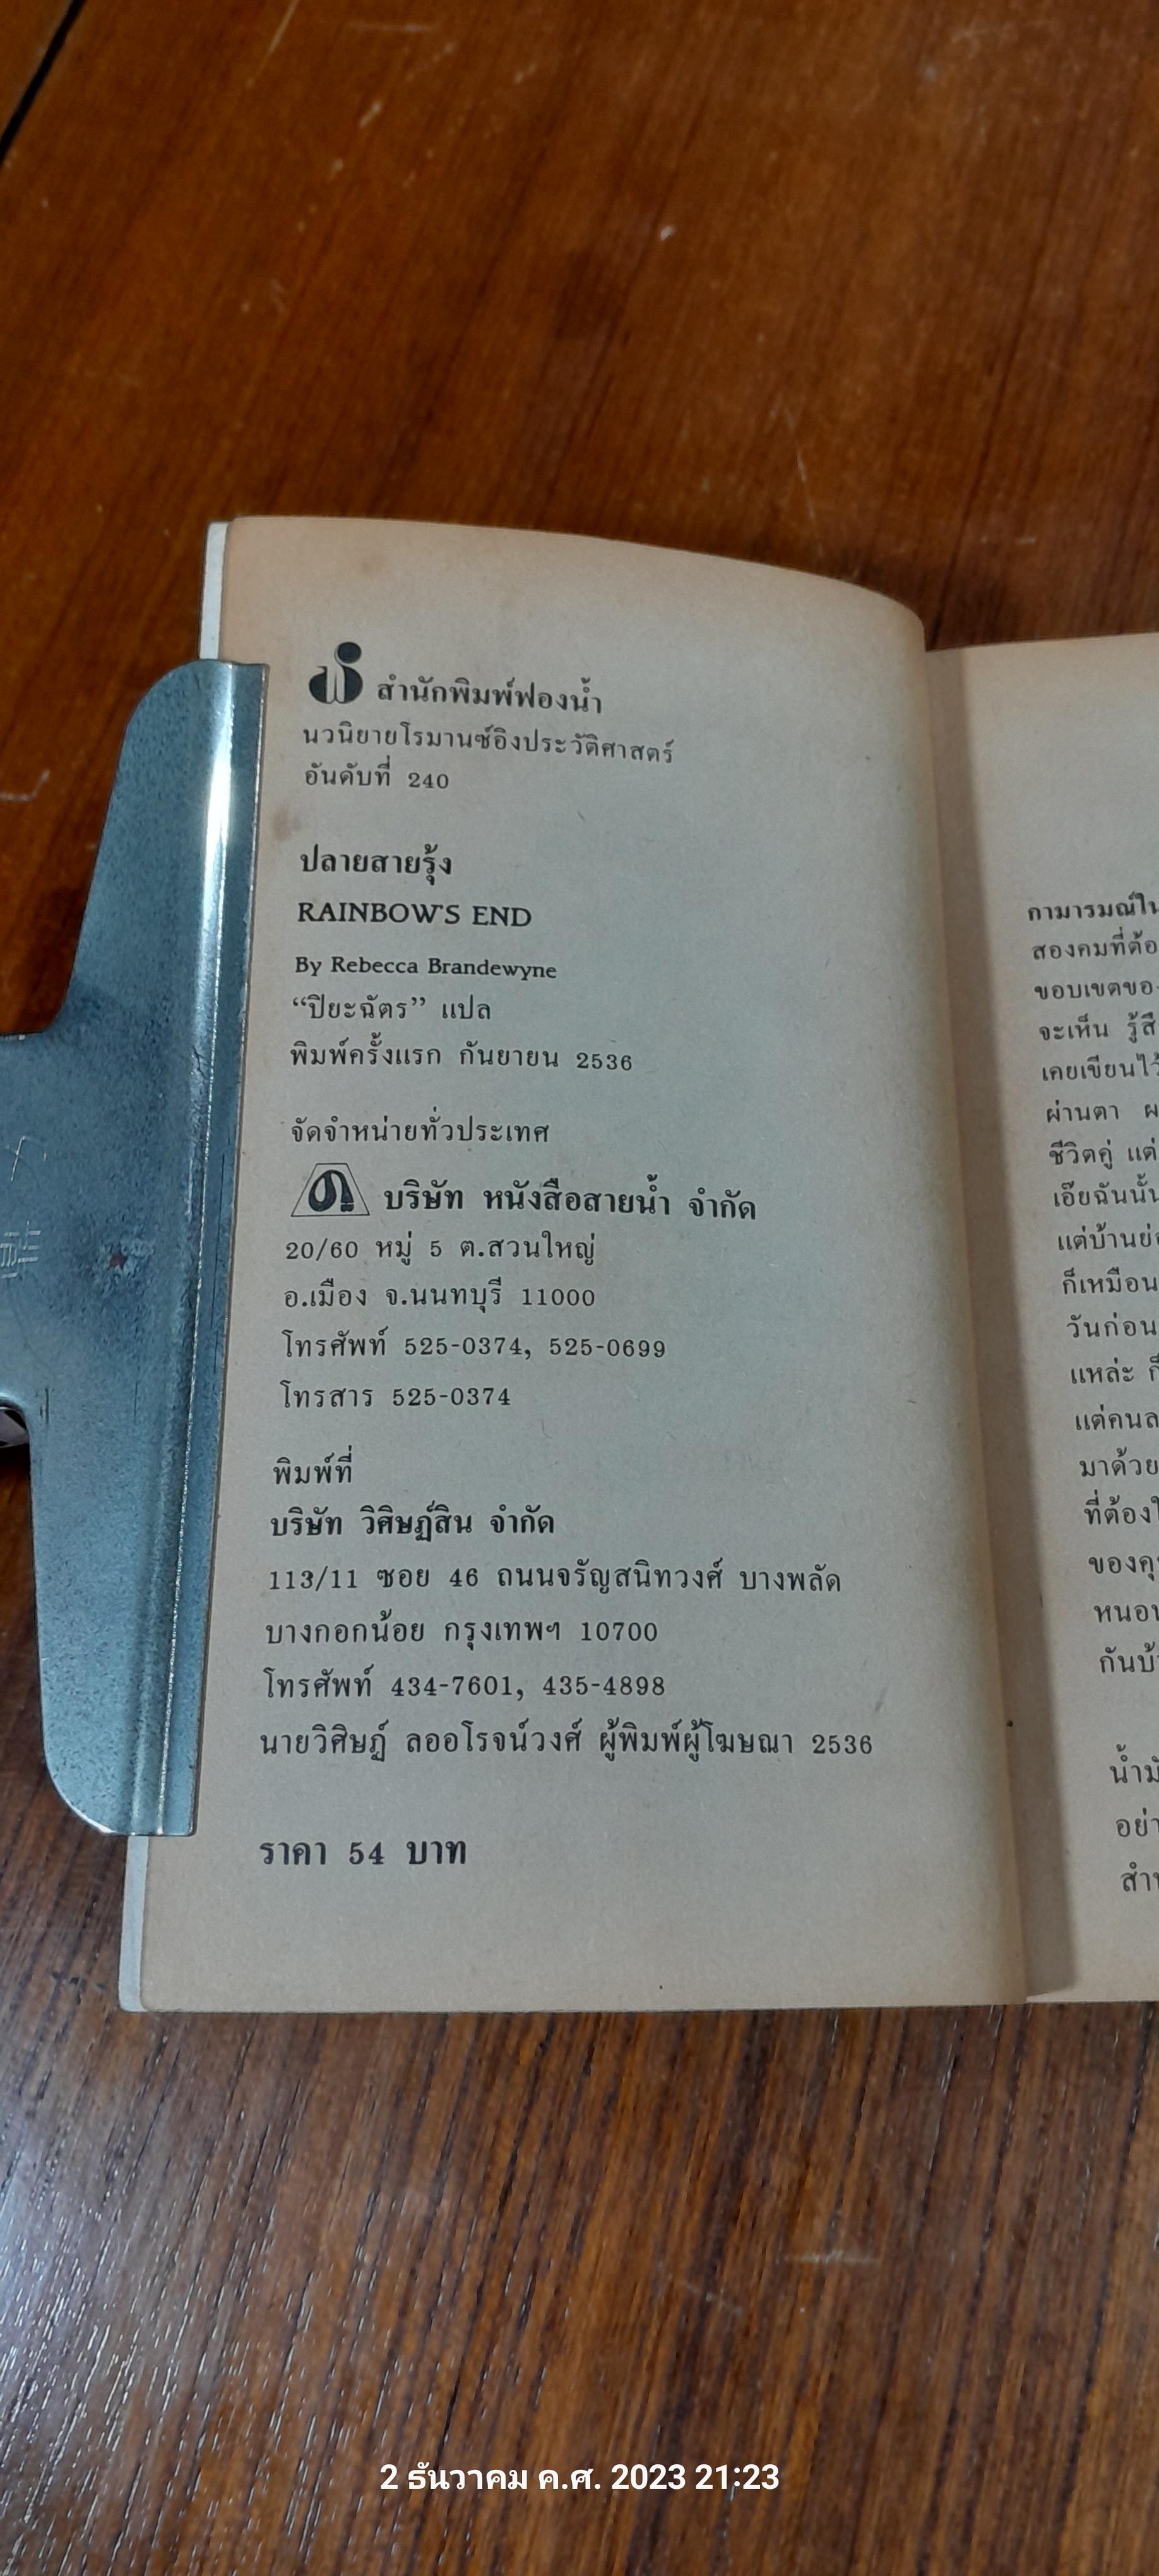 สำนักพิมพ์ฟองน้ำ
นวนิยายโรมานซ์อิงประวัติศาสตร์
อันดับที่ 240
ปลายสายรุ้ง
RAINBOW'S END
By Rebecca Brandewyne
“ปิยะฉัตร” แปล
พิมพ์ครั้งแรก กันยายน 2536
จัดจำหน่ายทั่วประเทศ
บริษัท หนังสือสายน้ำ จำกัด
20/60 หมู่ 5 ต.สวนใหญ่
อ.เมือง จ.นนทบุรี 11000
โทรศัพท์ 525-0374, 525-0699
โทรสาร 525-0374
พิมพ์ที่
บริษัท วิศิษฏ์สิน จำกัด
113/11 ซอย 46 ถนนจรัญสนิทวงศ์ บางพลัด
บางกอกน้อย กรุงเทพฯ 10700
โทรศัพท์ 434-7601, 435-4898
นายวิศิษฏ์ ลออโรจน์วงศ์ ผู้พิมพ์ผู้โฆษณา 2536
ราคา 54 บาท
กามารมณ์ใน
สองคมที่ต้อ
ขอบเขตของ
จะเห็น รู้สึ
เคยเขียนไว้
ผ่านตา ผ
ชีวิตคู่ แต่
เอ๊ยฉันนั้น
แต่บ้านย่อ
ก็เหมือน
วันก่อน
แหล่ะ ก็
แต่คนล
มาด้วย
ที่ต้องใ
ของคุ
หนอน
กันบ้
น้ำมั
อย่า
สำน
2 ธันวาคม ค.ศ. 2023 21:23